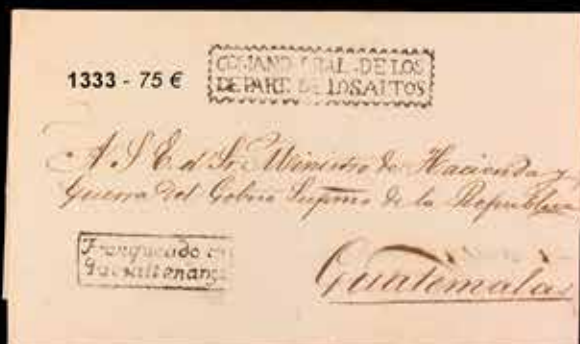 1333 - 75 €
COMAND GRAL DE LOS
DEPART. DE LOS ALTOS
A. S. E. el Sr. Ministro de Hacienda y
Guerra del Gobno Supmo de la Republica
Franqueado en
Quezaltenango
Guatemala